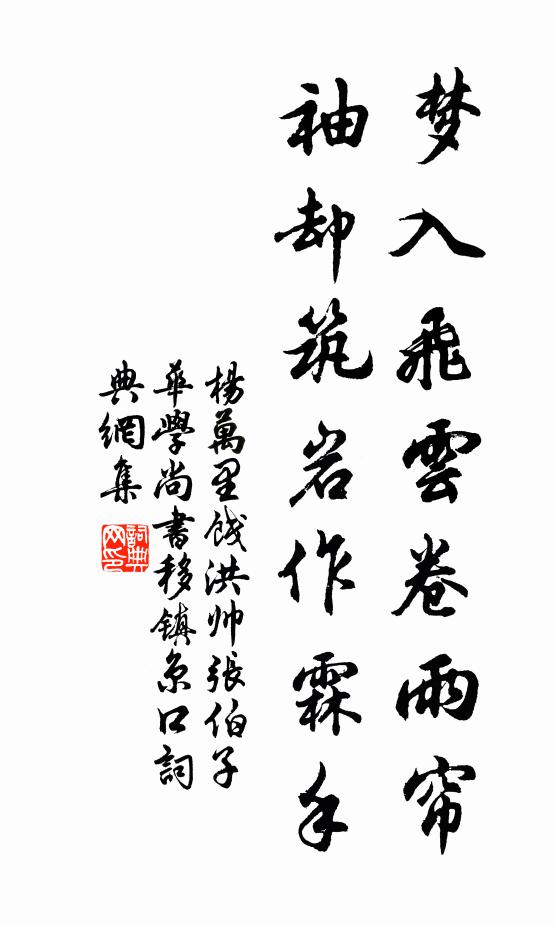 梦入飛雲卷雨帘
袖却筑岩作霖手
楊萬里餞洪帅張伯子
華學尚書移鎮京口詞
典網集
詞典网印